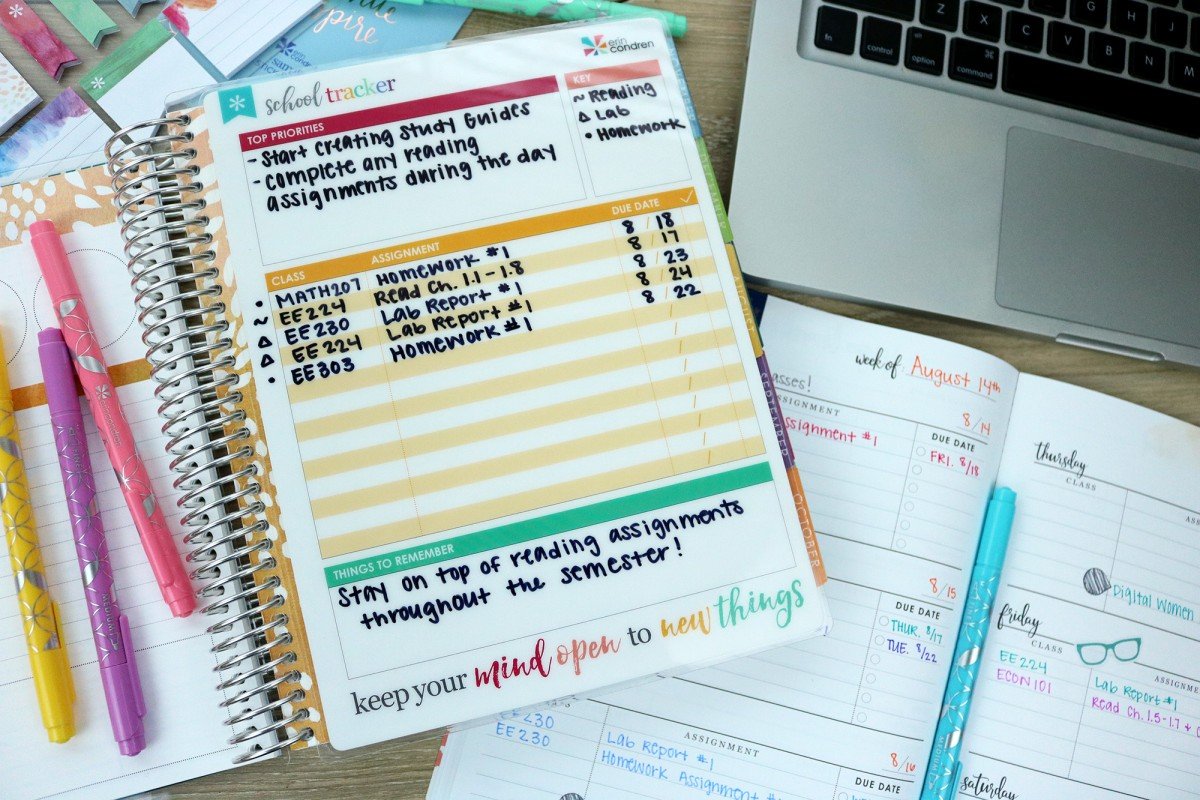 erin
condren
school tracker
TOP PRIORITIES
- Start creating Study Guides
- complete any reading
assignments during the day
KEY
~ Reading
Δ Lab
• Homework
CLASS ASSIGNMENT DUE DATE ✓
• MATH207 Homework #1 8 / 18
~ EE224 Read Ch. 1.1 - 1.8 8 / 17
Δ EE230 Lab Report #1 8 / 23
Δ EE224 Lab Report #1 8 / 24
• EE303 Homework #1 8 / 22
THINGS TO REMEMBER
Stay on top of reading assignments
throughout the semester!
keep your mind open to new things
OCTOBER
fn control option command
Z X C V B N M
week of August 14th
asses!
SSIGNMENT
8/14
ssignment #1
DUE DATE
FRI. 8/18
8/15
DUE DATE
THUR. 8/17
TUE. 8/22
EE 230
EE 230
ASSIGNMENT
Lab Report #1
Homework Assignment
8/16
DUE DATE
thursday
CLASS
Digital Women
friday
CLASS
ASSIGNMENT
EE 224
ECON 101
Lab Report #1
Read Ch. 1.5-1.7 +
saturday